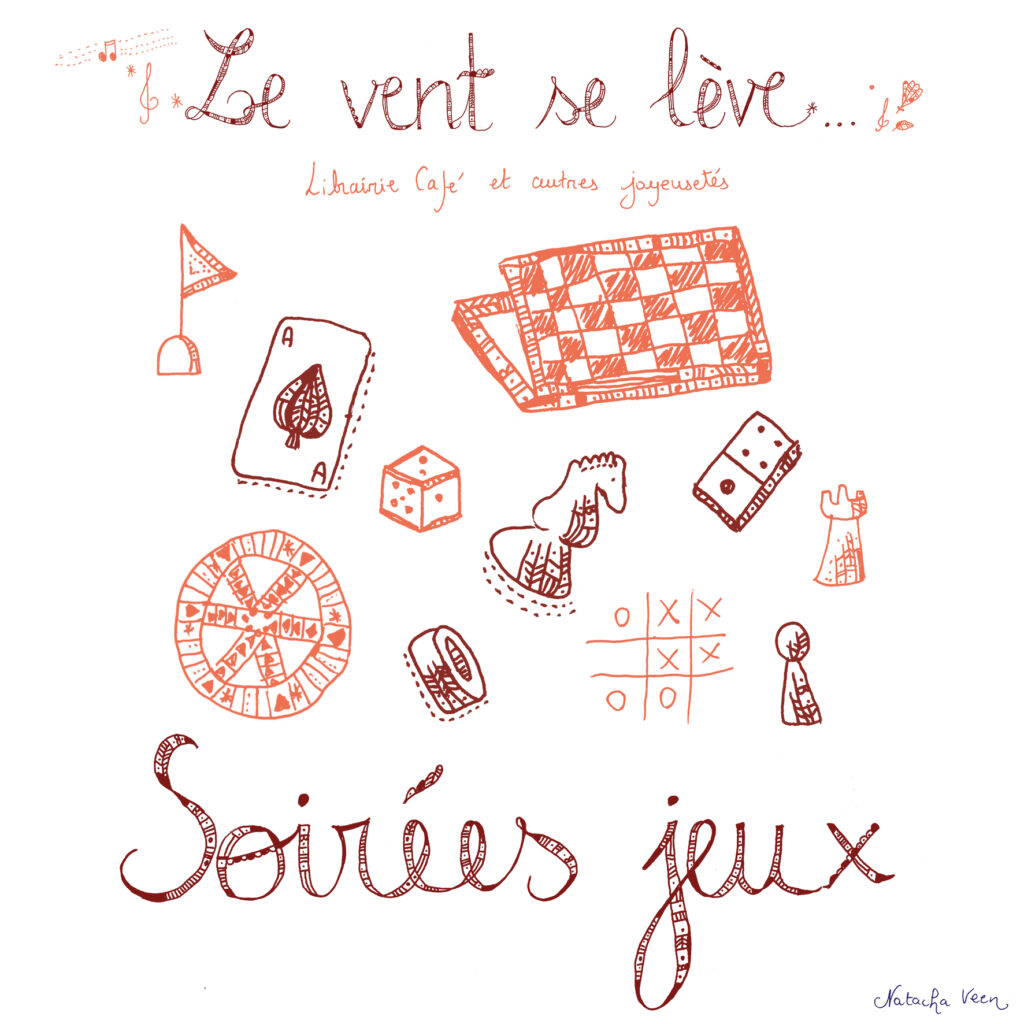 Le vent se lève...
Librairie Café et autres joyeusetés
A
A
O X X
X X
O O
Soirées jeux
Natacha Vern